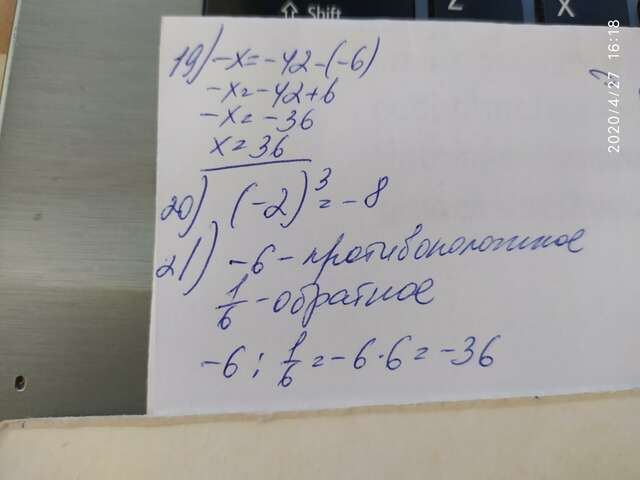 Shift
Z
X
2020/4/27 16:18
19) -x = -42-(-6)
-x = -42+6
-x = -36
x = 36
20) (-2)³ = -8
21) -6 - противоположное
1/6 - обратное
-6 : 1/6 = -6·6 = -36